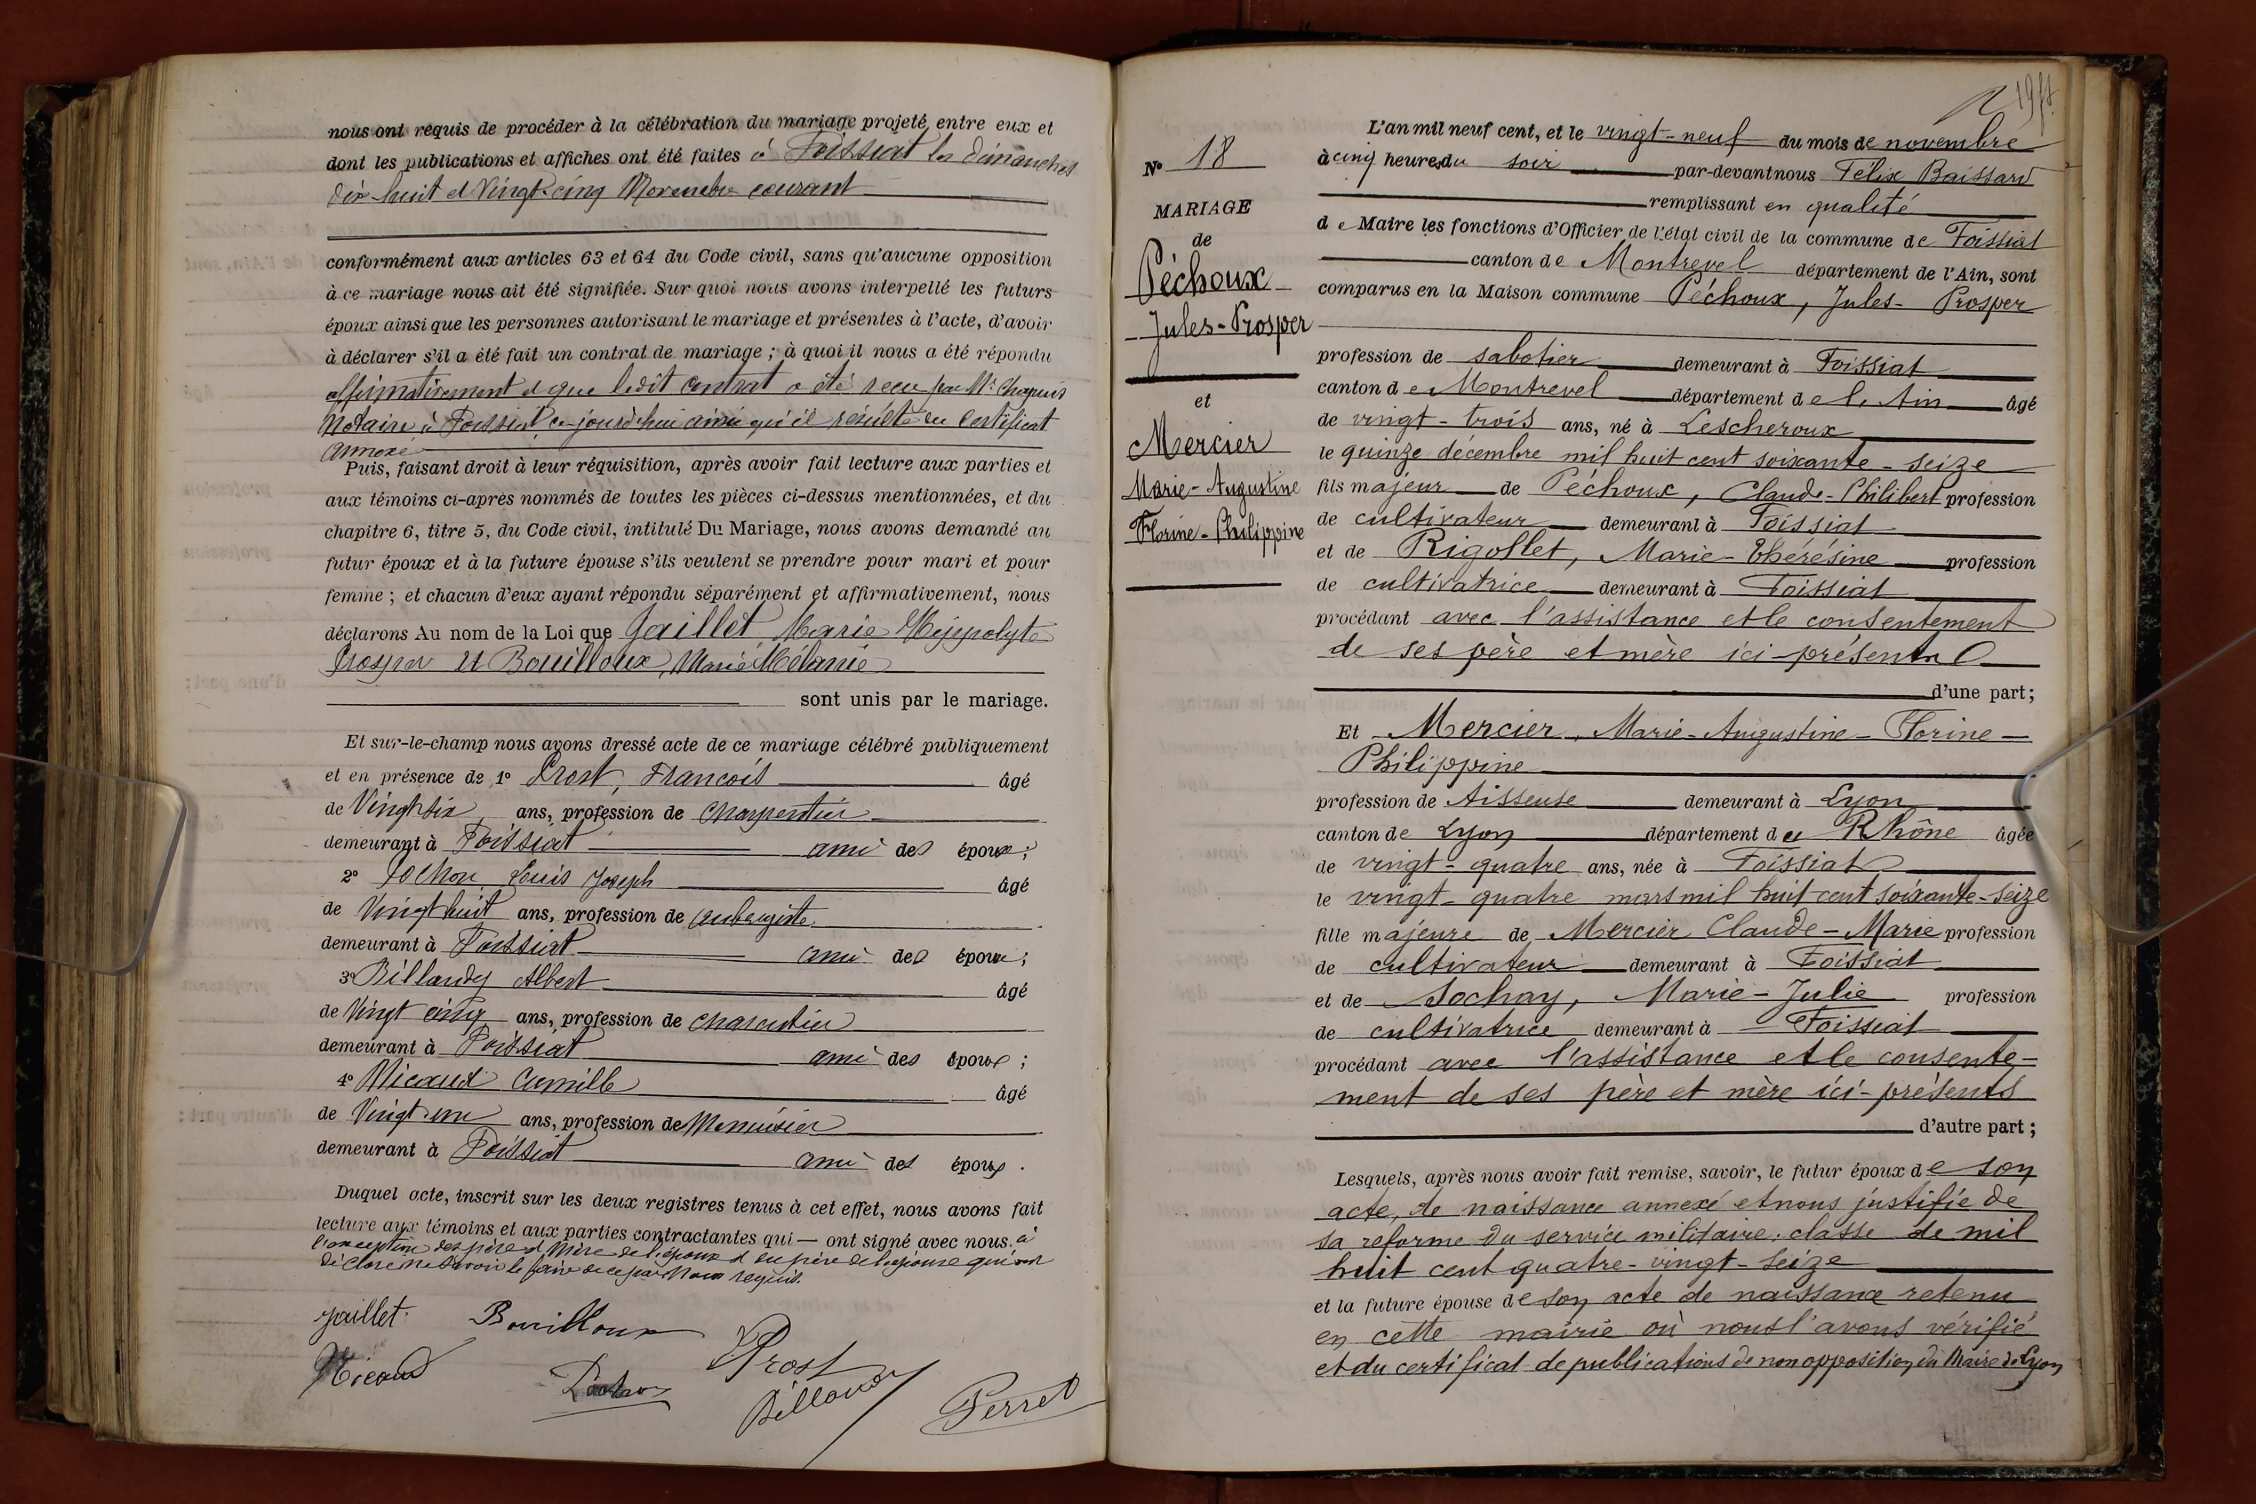 nous ont requis de procéder à la célébration du mariage projeté entre eux et
dont les publications et affiches ont été faites à Foissiat les dimanches
dix-huit et Vingt cinq Novembre courant
conformément aux articles 63 et 64 du Code civil, sans qu'aucune opposition
à ce mariage nous ait été signifiée. Sur quoi nous avons interpellé les futurs
époux ainsi que les personnes autorisant le mariage et présentes à l'acte, d'avoir
à déclarer s'il a été fait un contrat de mariage ; à quoi il nous a été répondu
affirmativement et que ledit contrat a été reçu par Me Chapuis
Notaire à Foissiat ce-jourd'hui ainsi qu'il résulte du Certificat
annexé
Puis, faisant droit à leur réquisition, après avoir fait lecture aux parties et
aux témoins ci-après nommés de toutes les pièces ci-dessus mentionnées, et du
chapitre 6, titre 5, du Code civil, intitulé Du Mariage, nous avons demandé au
futur époux et à la future épouse s'ils veulent se prendre pour mari et pour
femme ; et chacun d'eux ayant répondu séparément et affirmativement, nous
déclarons Au nom de la Loi que Jaillet Marie Hippolyte
Prosper et Bouilloux, Marie Mélanie
sont unis par le mariage.
Et sur-le-champ nous avons dressé acte de ce mariage célébré publiquement
et en présence de 1° Prost, François âgé
de Vingt six ans, profession de Charpentier
demeurant à Foissiat ami des époux ;
2° Pochon Louis Joseph âgé
de Vingt huit ans, profession de aubergiste
demeurant à Foissiat ami des époux ;
3° Billaudy Albert âgé
de Vingt cinq ans, profession de charcutier
demeurant à Foissiat ami des époux ;
4° Micaud Camille âgé
de Vingt un ans, profession de Menuisier
demeurant à Foissiat ami des époux .
Duquel acte, inscrit sur les deux registres tenus à cet effet, nous avons fait
lecture aux témoins et aux parties contractantes qui — ont signé avec nous. à
l'exception des père et Mère de l'époux et du père de l'épouse qui ont
déclaré ne savoir le faire de ce par Nous requis.
Jaillet Bouilloux
Prost
Micaud Pochon
Billaudy
Perret
197
N° 18
MARIAGE
de
Péchoux
Jules-Prosper
et
Mercier
Marie-Augustine
Florine-Philippine
L'an mil neuf cent, et le vingt-neuf du mois de novembre
à cinq heures du soir par-devant nous Félix Baissard
remplissant en qualité
de Maire les fonctions d'Officier de l'état civil de la commune de Foissiat
canton de Montrevel département de l'Ain, sont
comparus en la Maison commune Péchoux, Jules-Prosper
profession de sabotier demeurant à Foissiat
canton de Montrevel département de l'Ain âgé
de vingt-trois ans, né à Lescheroux
le quinze décembre mil huit cent soixante-seize
fils majeur de Péchoux, Claude-Philibert profession
de cultivateur demeurant à Foissiat
et de Rigollet, Marie-Thérésine profession
de cultivatrice demeurant à Foissiat
procédant avec l'assistance et le consentement
de ses père et mère ici-présents
d'une part ;
Et Mercier, Marie-Augustine-Florine-
Philippine
profession de Tisseuse demeurant à Lyon
canton de Lyon département du Rhône âgée
de vingt-quatre ans, née à Foissiat
le vingt-quatre mars mil huit cent soixante-seize
fille majeure de Mercier Claude-Marie profession
de cultivateur demeurant à Foissiat
et de Sochay, Marie-Julie profession
de cultivatrice demeurant à Foissiat
procédant avec l'assistance et le consente-
ment de ses père et mère ici-présents
d'autre part ;
Lesquels, après nous avoir fait remise, savoir, le futur époux de son
acte, de naissance annexé et nous justifié de
sa reforme du service militaire, classe de mil
huit cent quatre-vingt-seize
et la future épouse de son acte de naissance retenu
en cette mairie où nous l'avons vérifié
et du certificat de publications de non opposition du Maire de Lyon